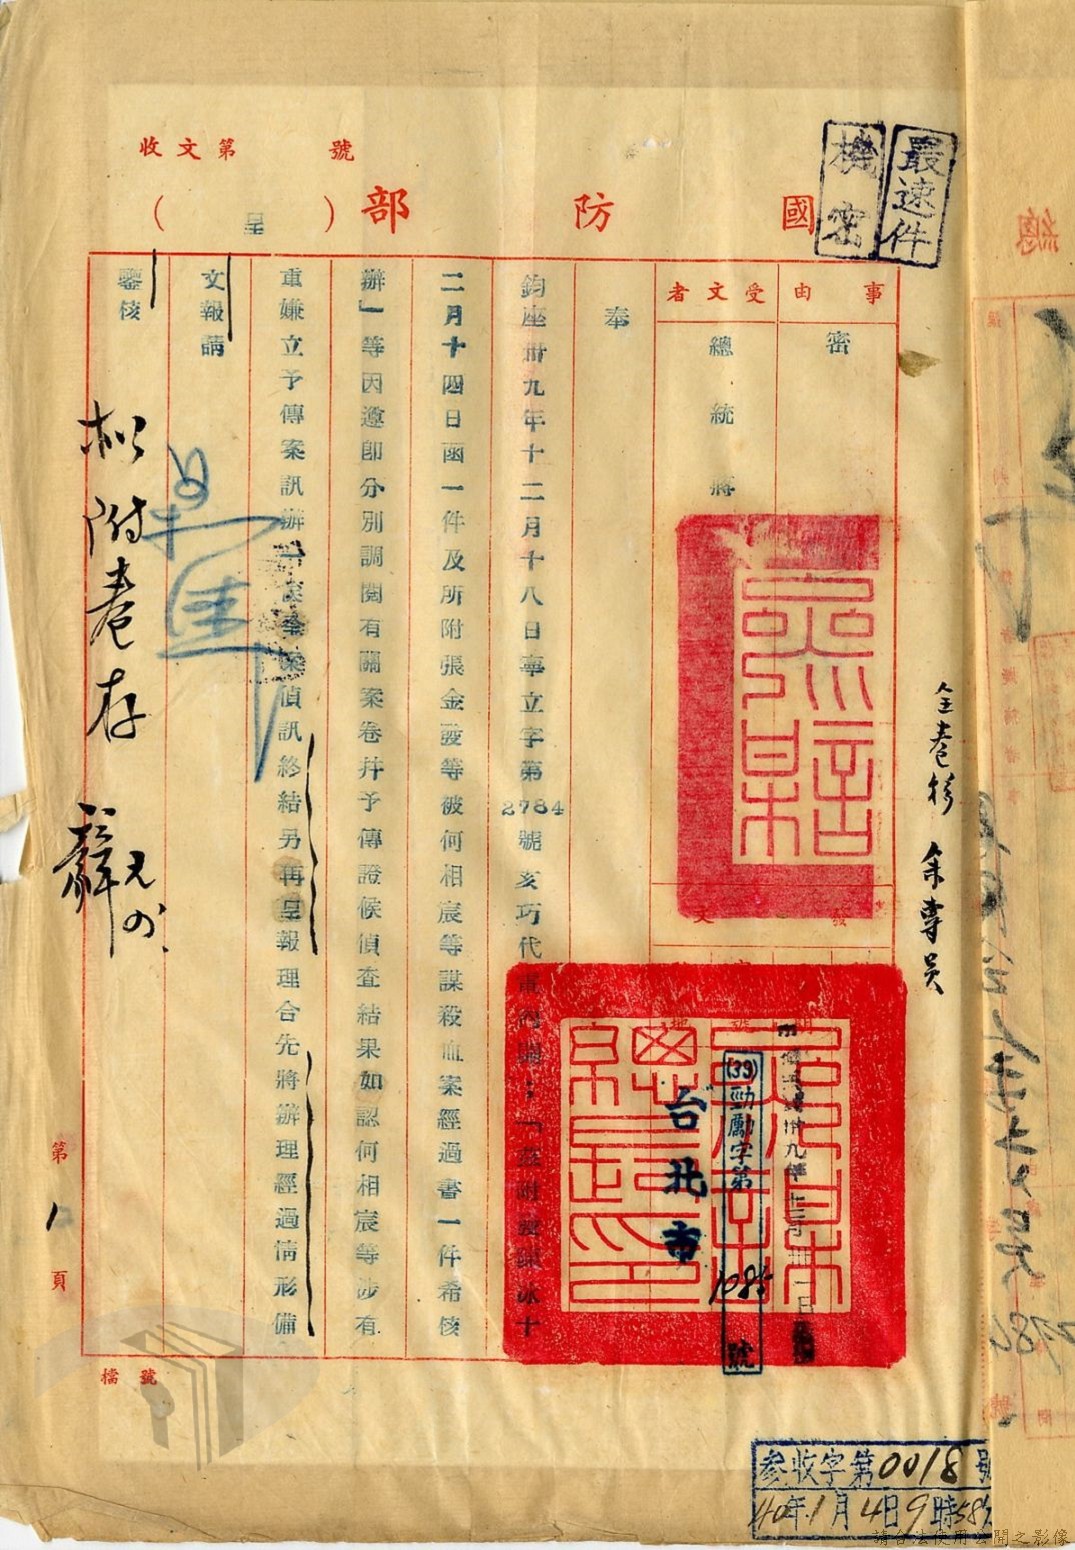 最速件
機密
收文第 號
國防部(呈)
事由
密
受文者
總統蔣
發
文
中華民國卅九年十二月卅一日
(39)勁勵字第1085號
台北市
奉
鈞座卅九年十二月十八日率立字第2784號亥巧代電內開:「茲附發陳泳十
二月十四日函一件及所附張金發等被何相宸等謀殺血案經過書一件希核
辦」等因遵即分別調閱有關案卷幷予傳證候偵查結果如認何相宸等涉有
重嫌立予傳案訊辦 偵訊終結另再呈報理合先將辦理經過情形備
文報請
鑒核
擬附卷存
全卷移 余專員
第1頁
檔號
參收字第0018號
40年1月4日9時58分
請合法使用公開之影像